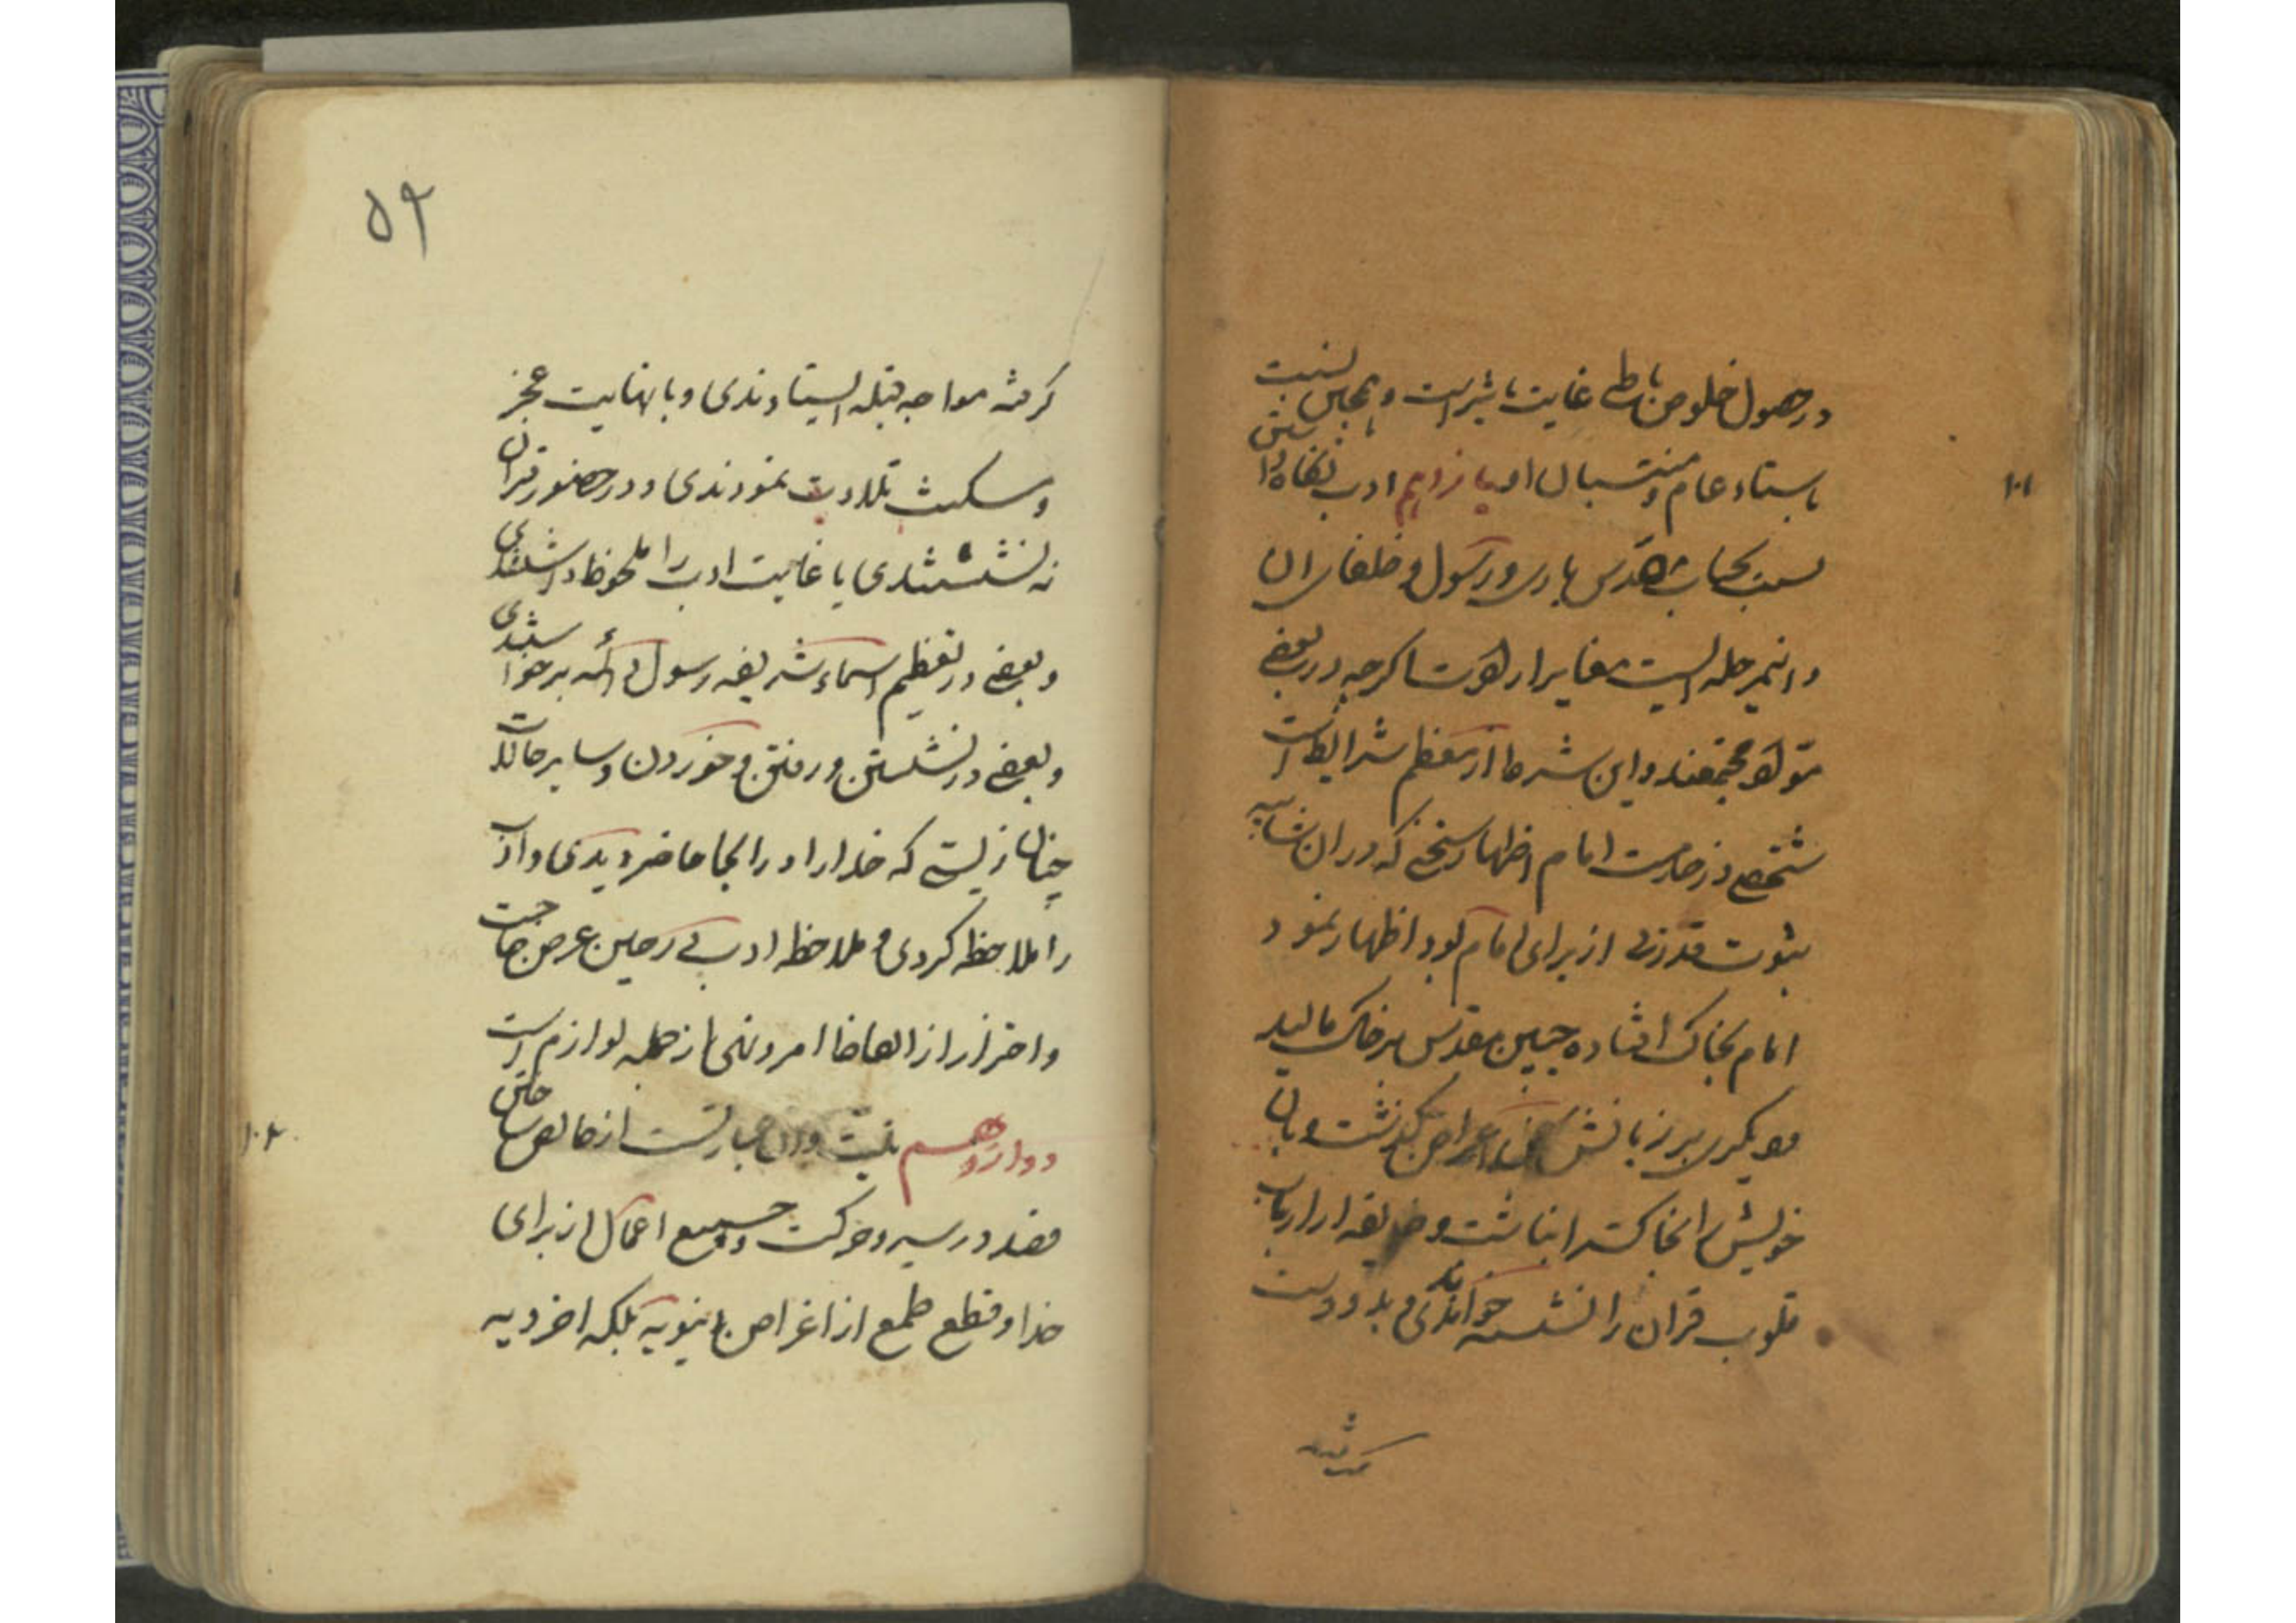 در حصول خلوص باطن غایت تاثیر است و همچنین نسبت
باستاد عام و منتسبان او یازدهم ادب نگاه داشتن
نسبت بجناب اقدس باری و رسول و خلفای ان
و اینمرحله ایست مغایر ارادت اگر چه در بعضی
مواد مجتمعند و این شرط از معظم شرایط است
شخصی در خدمت امام اظهار سخنی که در ان شایبه
ثبوت قدرتی از برای امام بود اظهار نمود
امام بخاک افتاده جبین مقدس بر خاک مالید
که دیگری بر زبانش این اعتراض نگذشت و بان
خویش را بخاکستر انباشت و طایفه از ارباب
قلوب قران را نشسته نخواندندی بلکه دست
گرفته
۵۲
گرفته مواجه قبله ایستادندی و با نهایت عجز
و مسکنت تلاوت نمودندی و در حضور قران
نه نشستندی یا غایت ادب را ملحوظ داشتندی
و بعضی در تعظیم اسماء شریفه رسول و ائمه برخواستندی
و بعضی در نشستن و رفتن و خوردن و سایر حالات
چنان زیستی که خدا را در انجا حاضر دیدی و ادب
را ملاحظه کردی و ملاحظه ادب در حین عرض حاجت
و احتراز از الفاظ امر و نهی از جمله لوازم است
دوازدهم نیت و ان عبارتست از خالص ساختن
قصد در سیر و حرکت و جمیع اعمال از برای
خدا و قطع طمع از اغراض دنیویه بلکه اخرویه
۱۰۱
۱۰۲